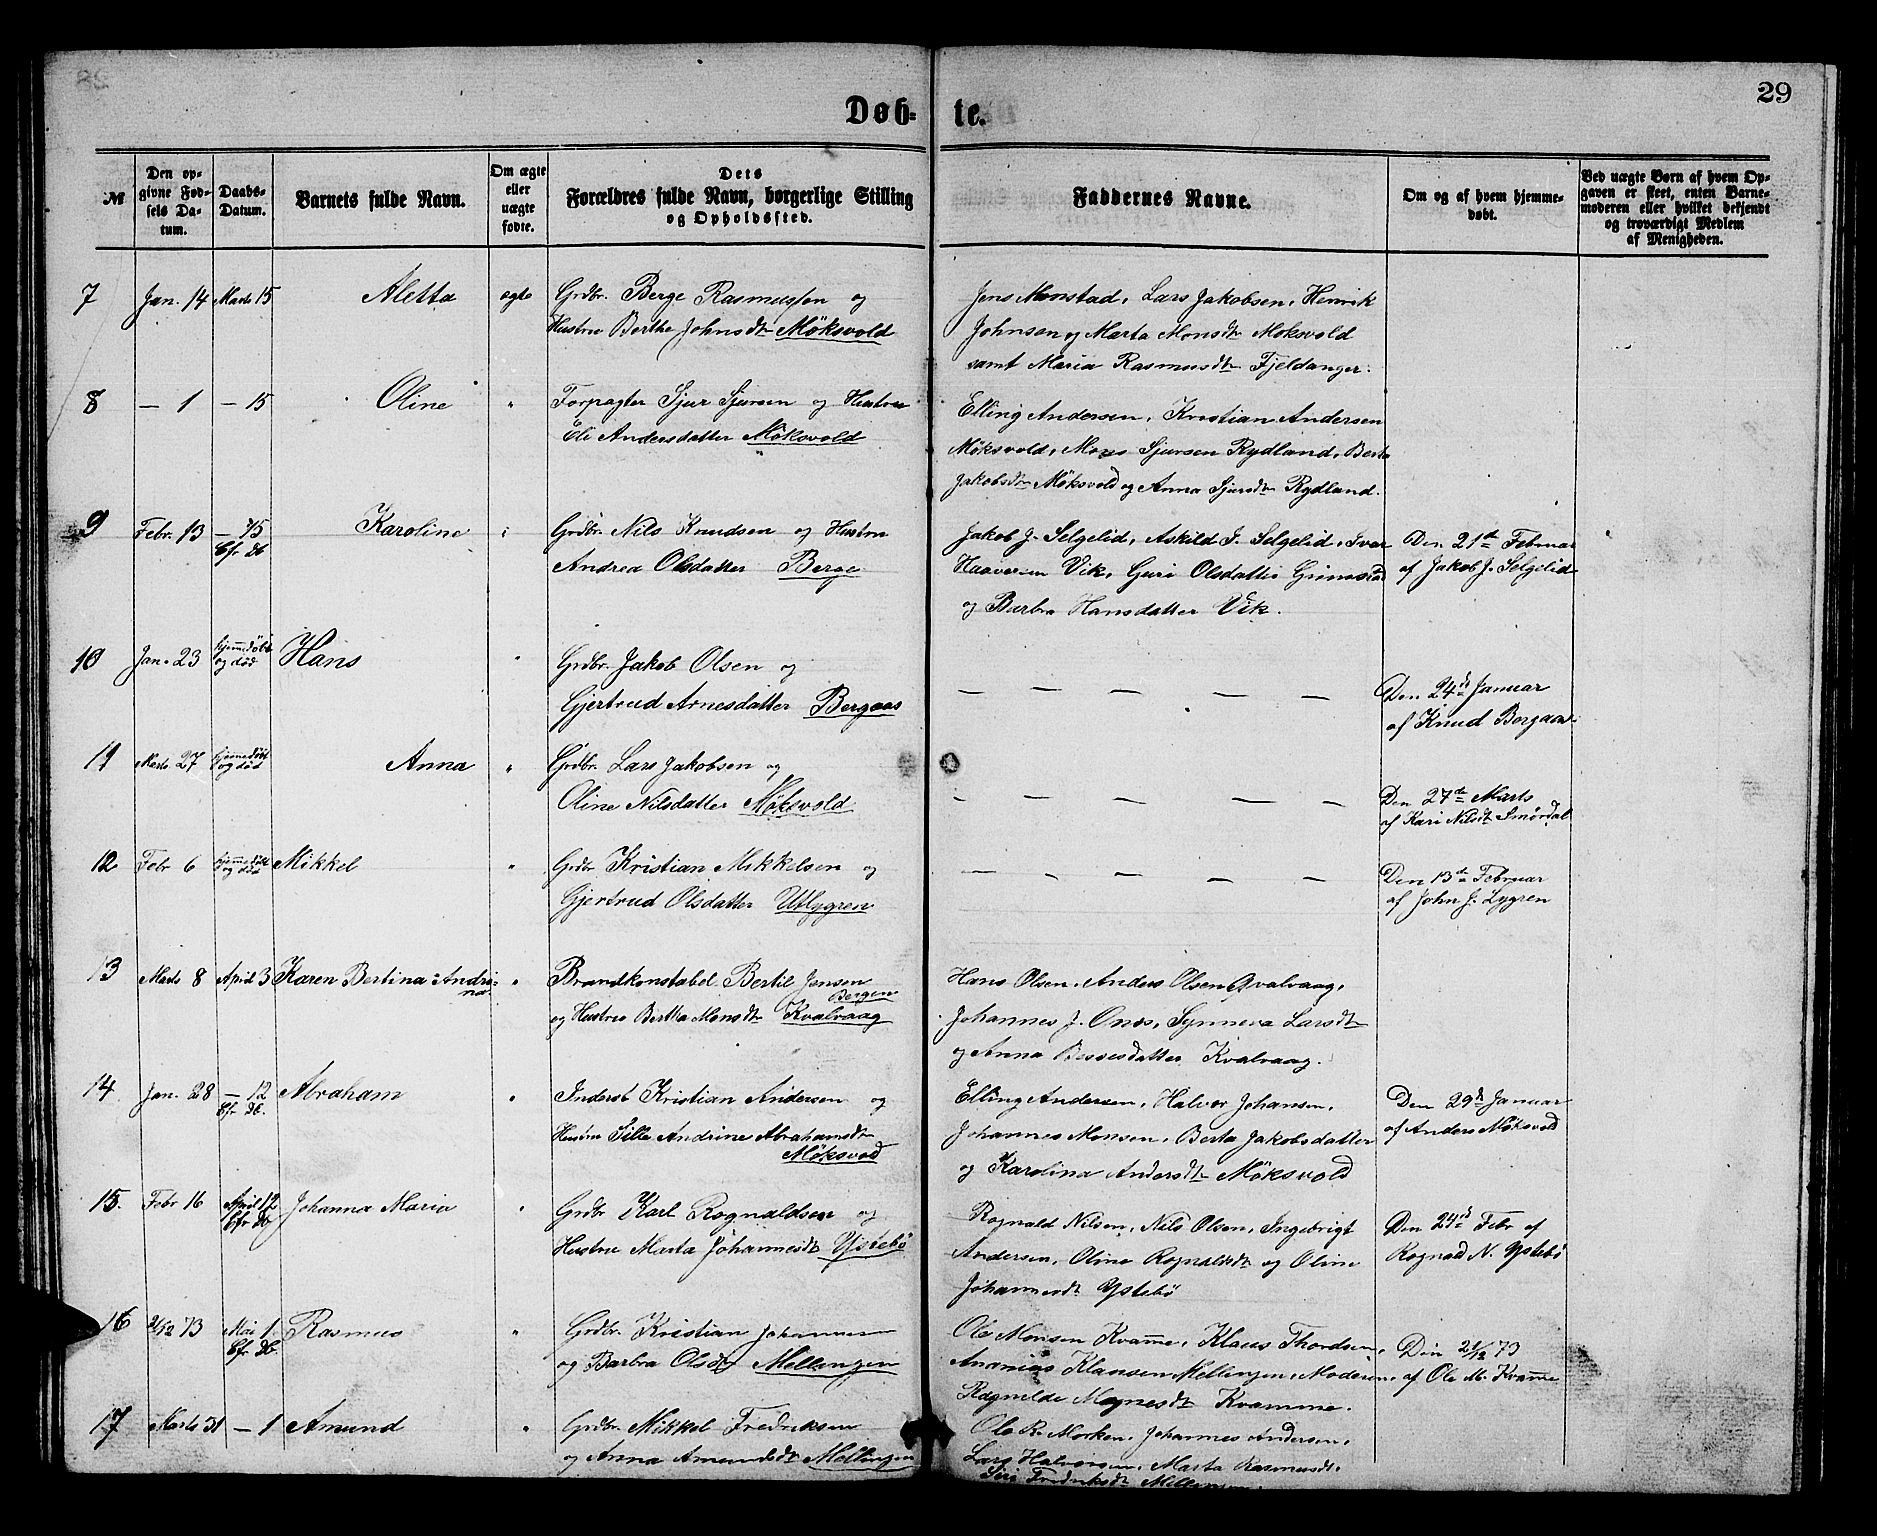 29
Døb- te.
№
Den opgivne Fødsels Datum.
Daabs-Datum.
Barnets fulde Navn.
Om ægte eller uægte fødte.
Dets Forældres fulde Navn, borgerlige Stilling og Opholdssted.
Faddernes Navne.
Om og af hvem hjemmedøbt.
Ved uægte Børn af hvem Opgaven er skeet, enten Barnemoderen eller hvilket bekjendt og troværdigt Medlem af Menigheden.
7 Jan. 14 Marts 15 Aletta ægte Grdbr. Berge Rasmussen og
Hustru Berthe Johnsdtr Møksvold
Jens Monstad, Lars Jakobsen, Henrik
Johnsen og Marta Monsdtr Moksvold
samt Maria Rasmusdtr Fjeldanger.
8 — 1 — 15 Oline " Forpagter Sjur Sjursen og Hustru
Eli Andersdatter Møksvold
Elling Andersen, Kristian Andersen
Møksvold, Mons Sjursen Rydland, Berta
Jakobsdtr Møksvold og Anna Sjursdtr Rydland.
9 Febr. 13 — 15 Karoline " Grdbr. Nils Knudsen og Hustru
Cfr. db
Andrea Olsdatter Berge
Jakob J. Selgelid, Askild I. Selgelid, Iver
Haaversen Vik, Guri Olsdatter Grimstad
og Barbra Hansdatter Vik.
Den 21de Februar
af Jakob J. Selgelid
10 Jan. 23 hjemmedøbt og død Hans " Grdbr. Jakob Olsen og
Gjertrud Arnesdatter Bergaas
— — — — —
Den 24de Januar
af Knud Bergaas.
11 Marts 27 hjemmedøbt og død Anna " Grdbr. Lars Jakobsen og
Oline Nilsdatter Møksvold
— — — — —
Den 27de Marts
af Kari Nilsdtr Smørdal
12 Febr 6 hjemmedøbt og død Mikkel " Grdbr Kristian Mikkelsen og
Gjertrud Olsdatter Utlygren
— — — — —
Den 13de Februar
af John J. Lygren
13 Marts 8 April 3 Karen Bertina Andri-
na
" Brandkonstabel Bertil Jensen
Bergen
og Hustru Bertha Monsdtr Kvalvaag
Hans Olsen, Anders Olsen Qvalvaag,
Johannes J. Onæs, Synneva Larsdtr
og Anna Bessesdatter Kvalvaag.
14 Jan. 28 — 12 Abraham " Inderst Kristian Andersen og
Cfr. db.
Hustru Sille Andrine Abrahamsdtr
Møksvod
Elling Andersen, Halvor Johansen,
Johannes Monsen, Berta Jakobsdatter
og Karolina Andersdtr Møksvold
Den 29de Januar
af Anders Møksvod
15. Febr 16 April 12 Johanna Maria " Grdbr Karl Rognaldsen og
Cfr db
Hustru Marta Johannesdtr Ystebø
Rognald Nilsen, Nils Olsen, Ingebrigt
Andersen, Oline Rognaldsdtr og Oline
Johannesdtr Ystebø
Den 24de Febr af
Rognald N. Ystebø
16 2/12 73 Mai 1. Rasmus " Grdbr. Kristian Johannes
Cfr. db.
og Barbra Olsdtr Mellingen
Ole Monsen Kvamme, Klaus Thordsen,
Ananias Klausen Mellingen, Moderen,
Ragnilde Magnesdtr Kvamme.
Den 2/12 73
af Ole M. Kvamme
17 Marts 31 — 1 Amund " Grdbr. Mikkel Fredriksen
og Anna Amundsdtr Mellingen
Ole R. Morken, Johannes Andersen,
Lars Halvorsen, Marta Rasmusdtr,
Siri Fredriksdtr Mellingen.